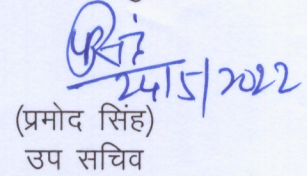 24/5/2022
(प्रमोद सिंह)
उप सचिव